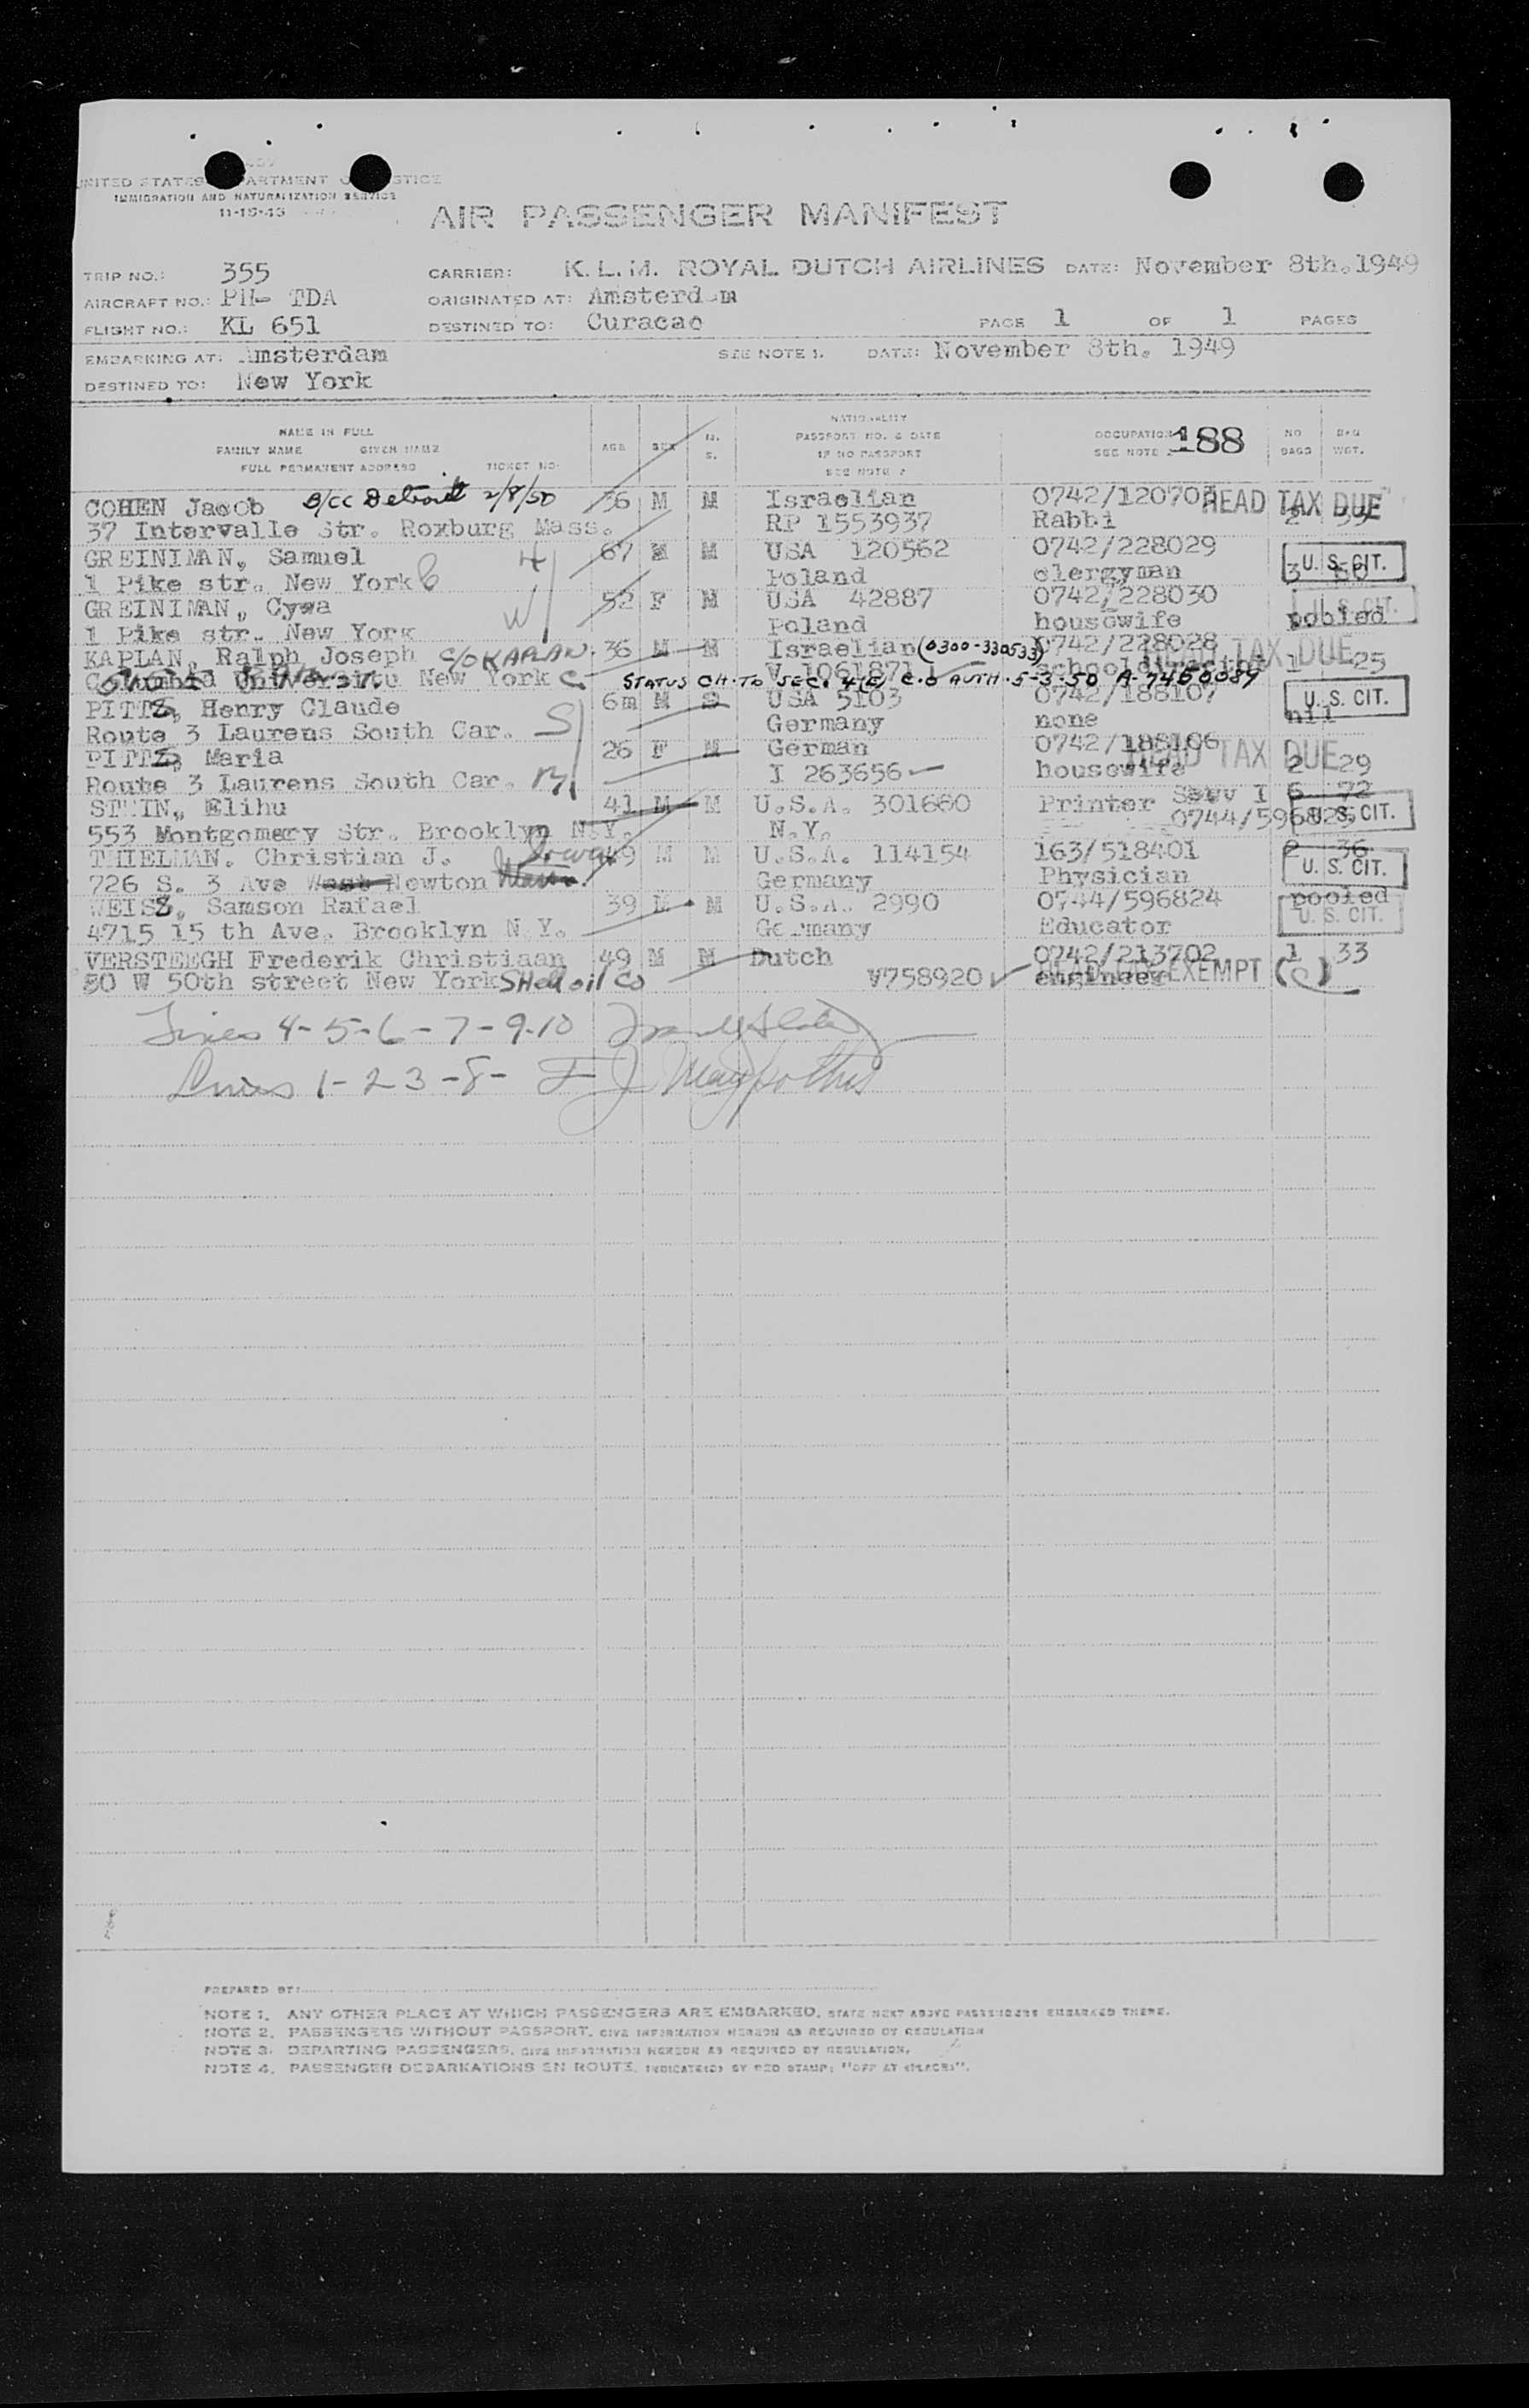 UNITED STATES DEPARTMENT OF JUSTICE
IMMIGRATION AND NATURALIZATION SERVICE
AIR PASSENGER MANIFEST
TRIP NO.: 355 CARRIER: K.L.M. ROYAL DUTCH AIRLINES DATE: November 8th. 1949
AIRCRAFT NO.: PH- TDA ORIGINATED AT: Amsterdam
FLIGHT NO.: KL 651 DESTINED TO: Curacao PAGE 1 OF 1 PAGES
EMBARKING AT: Amsterdam SEE NOTE 1. DATE: November 8th. 1949
DESTINED TO: New York
NAME IN FULL
FAMILY NAME GIVEN NAME
FULL PERMANENT ADDRESS TICKET NO.
AGE SEX M. S.
NATIONALITY
PASSPORT NO. & DATE
IF NO PASSPORT
SEE NOTE 2
OCCUPATION
SEE NOTE 2
188
NO BAGS BAG WGT.
COHEN Jacob Detroit 2/8/50 36 M M Israelian HEAD TAX DUE
37 Intervalle Str. Roxburg Mass. RP 1553937 Rabbi 2
GREINIMAN, Samuel H 67 M M USA 120562 0742/228029 U.S. CIT.
1 Pike str. New York Poland clergyman 3
GREINIMAN, Cywa W 52 F M USA 42887 0742/228030 U.S. CIT.
1 Pike str. New York Poland housewife pooled
KAPLAN, Ralph Joseph C/O KAPLAN. 36 M M Israelian (0300-330533) 0742/228028 HEAD TAX DUE
Columbia University New York C. V 1061871 school director 1 25
STATUS CH. TO SEC. 4(E) C.O AUTH. 5-3-50
PITTS, Henry Claude S 6m M S USA 5103 0742/188107 U.S. CIT.
Route 3 Laurens South Car. Germany none nil
PITTS, Maria M 26 F M German 0742/188106 HEAD TAX DUE
Route 3 Laurens South Car. I 263656 housewife 2 29
STEIN, Elihu 41 M M U.S.A. 301660 Printer 6 72
553 Montgomery Str. Brooklyn N.Y. N.Y. U.S. CIT.
THIELMAN. Christian J. Iowa 49 M M U.S.A. 114154 163/518401 2 36
726 S. 3 Ave West Newton Germany Physician U.S. CIT.
WEISS, Samson Rafael 39 M M U.S.A. 2990 0744/596824 pooled
4715 15 th Ave. Brooklyn N Y. Germany Educator U.S. CIT.
VERSTEEGH Frederik Christiaan 49 M M Dutch 0742/213702 1 33
50 W 50th street New York Shell oil Co V758920 engineer EXEMPT (C)
Lines 4-5-6-7-9-10
Lines 1-2 3-8-
PREPARED BY:
NOTE 1. ANY OTHER PLACE AT WHICH PASSENGERS ARE EMBARKED, STATE NEXT ABOVE PASSENGERS EMBARKED THERE.
NOTE 2. PASSENGERS WITHOUT PASSPORT, GIVE INFORMATION HEREON AS REQUIRED BY REGULATION
NOTE 3. DEPARTING PASSENGERS, GIVE INFORMATION HEREON AS REQUIRED BY REGULATION.
NOTE 4. PASSENGER DEBARKATIONS EN ROUTE, INDICATE(D) BY RED STAMP: "OFF AT (PLACE)".